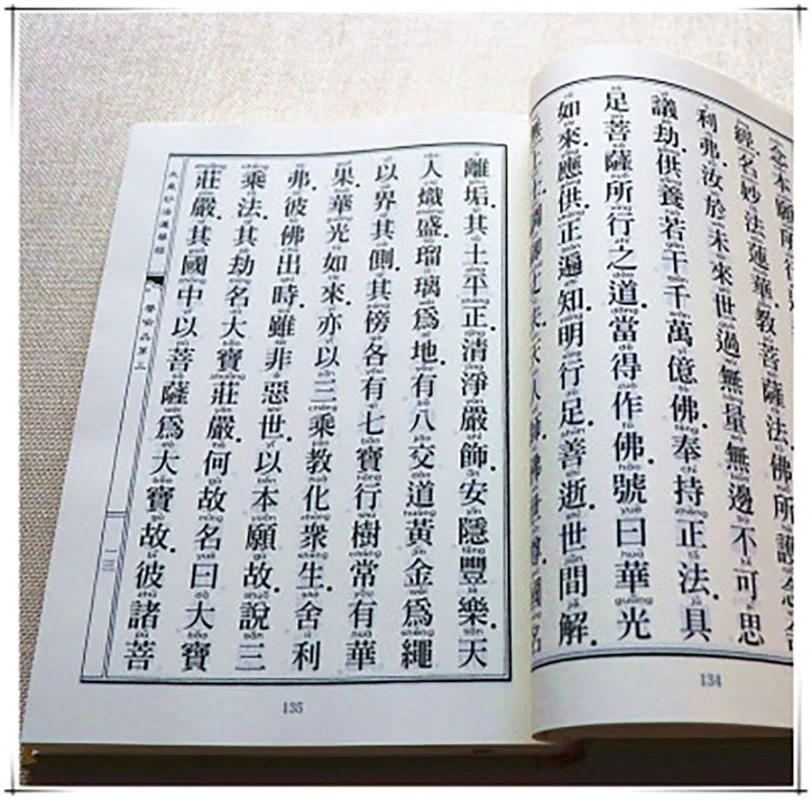 念本願所行
經。名妙法蓮華。教菩薩法。佛所護念。舍
利弗。汝於未來世。過無量無邊不可思
議劫。供養若干千萬億佛。奉持正法。具
足菩薩所行之道。當得作佛。號曰華光
如來。應供。正遍知。明行足。善逝。世間解。
上士
134
離垢。其土平正。清淨嚴飾。安隱豐樂。天
人熾盛。瑠璃爲地。有八交道。黃金爲繩
以界其側。其傍各有七寶行樹。常有華
果。華光如來。亦以三乘教化衆生。舍利
弗。彼佛出時。雖非惡世。以本願故。說三
乘法。其劫名大寶莊嚴。何故名曰大寶
莊嚴。其國中以菩薩爲大寶故。彼諸菩
大乘妙法蓮華經
譬喻品第三
一三
135